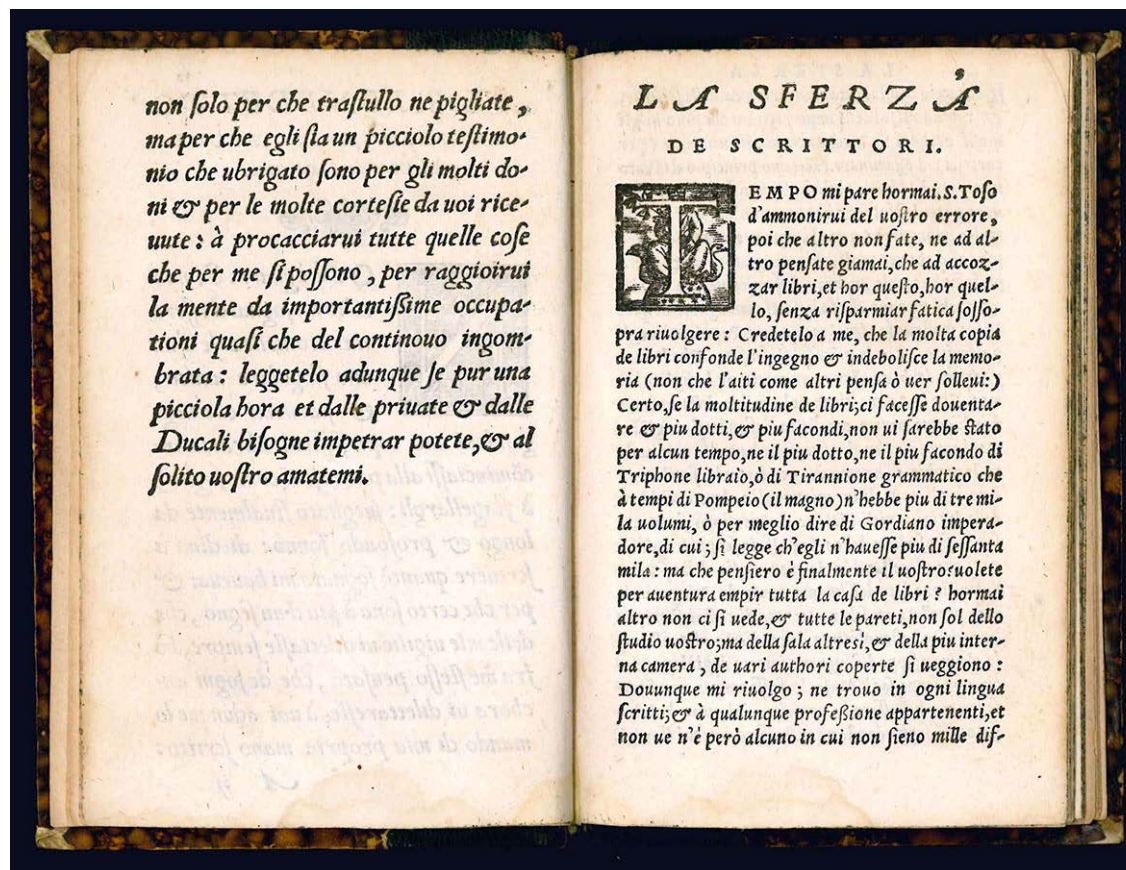 non ſolo per che traſtullo ne pigliate,
ma per che egli ſia un picciolo teſtimo-
nio che ubrigato ſono per gli molti do-
ni & per le molte corteſie da uoi rice-
uute: à procacciarui tutte quelle coſe
che per me ſi poſſono, per raggioirui
la mente da importantiſſime occupa-
tioni quaſi che del continouo ingom-
brata: leggetelo adunque ſe pur una
picciola hora et dalle priuate & dalle
Ducali biſogne impetrar potete, & al
ſolito uoſtro amatemi.
LA SFERZA
DE SCRITTORI.
TEMPO mi pare hormai. S. Toſo
d'ammonirui del uoſtro errore,
poi che altro non fate, ne ad al-
tro penſate giamai, che ad accoz-
zar libri, et hor queſto, hor quel-
lo, ſenza riſparmiar fatica ſoſſo-
pra riuolgere: Credetelo a me, che la molta copia
de libri confonde l'ingegno & indeboliſce la memo-
ria (non che l'aiti come altri penſa ò uer ſolleui:)
Certo, ſe la moltitudine de libri; ci faceſſe douenta-
re & piu dotti, & piu facondi, non ui ſarebbe ſtato
per alcun tempo, ne il piu dotto, ne il piu facondo di
Triphone libraio, ò di Tirannione grammatico che
à tempi di Pompeio (il magno) n'hebbe piu di tre mi-
la uolumi, ò per meglio dire di Gordiano impera-
dore, di cui; ſi legge ch'egli n'haueſſe piu di ſeſſanta
mila: ma che penſiero è finalmente il uoſtro? uolete
per auentura empir tutta la caſa de libri? hormai
altro non ci ſi uede, & tutte le pareti, non ſol dello
ſtudio uoſtro; ma della ſala altresì, & della piu inter-
na camera, de uari authori coperte ſi ueggiono:
Douunque mi riuolgo; ne trouo in ogni lingua
ſcritti; & à qualunque profeßione appartenenti, et
non ue n'é però alcuno in cui non ſieno mille dif-